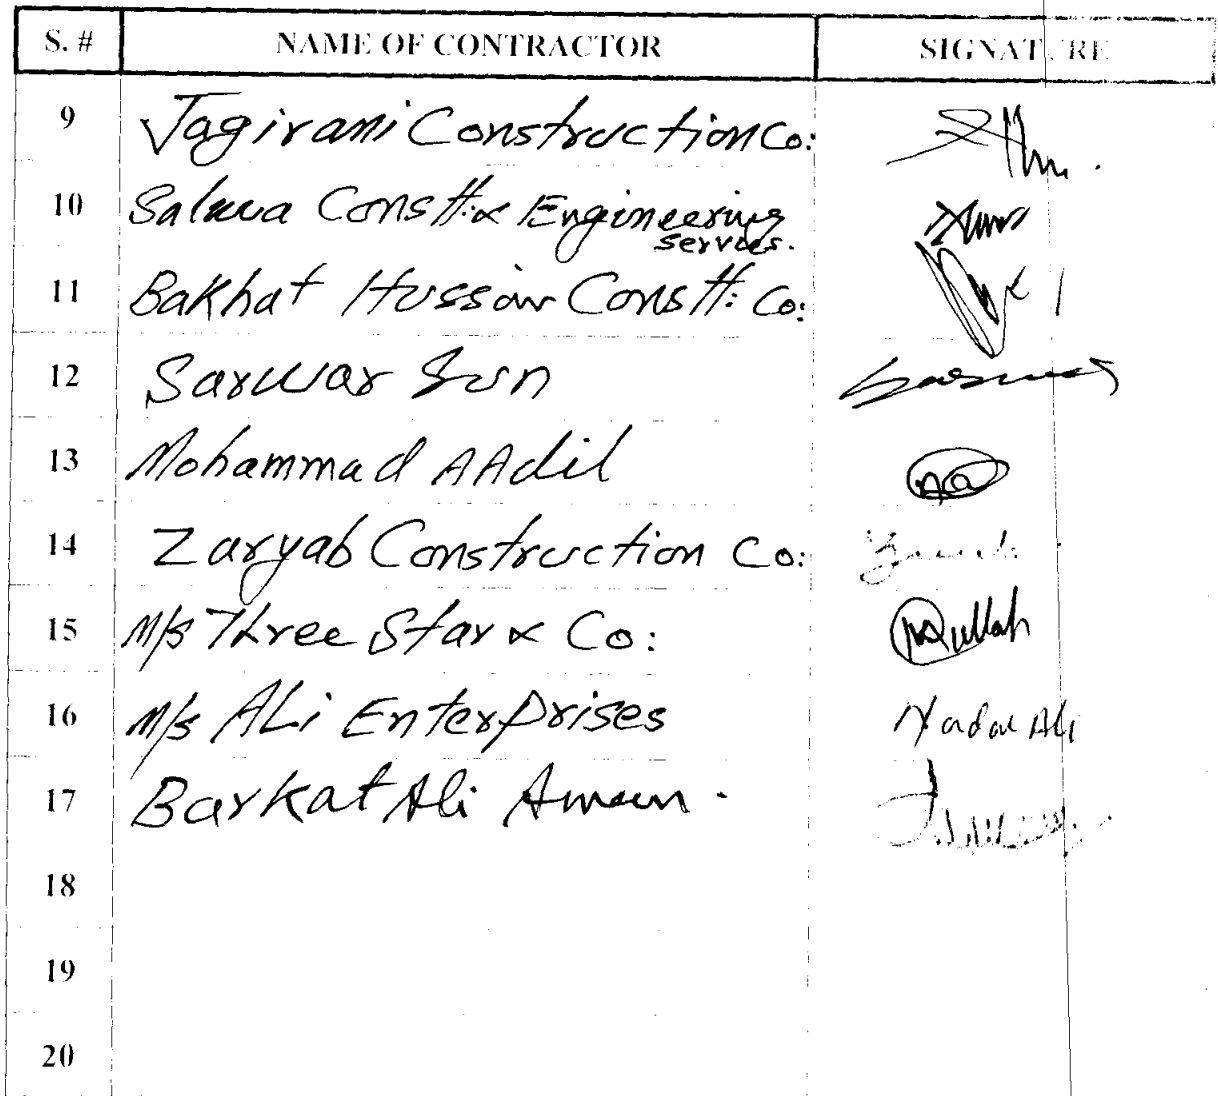 S. # NAME OF CONTRACTOR SIGNATURE
9 Jagirani Construction Co:
10 Salwa Constt: & Engineering
services.
11 Bakhat Hussain Constt: Co:
12 Sarwar Sun
13 Mohammad AAdil
14 Zaryab Construction Co:
15 M/s Three Star & Co:
16 M/s ALi Enterprises Nadar Ali
17 Barkat Ali Ameen.
18
19
20